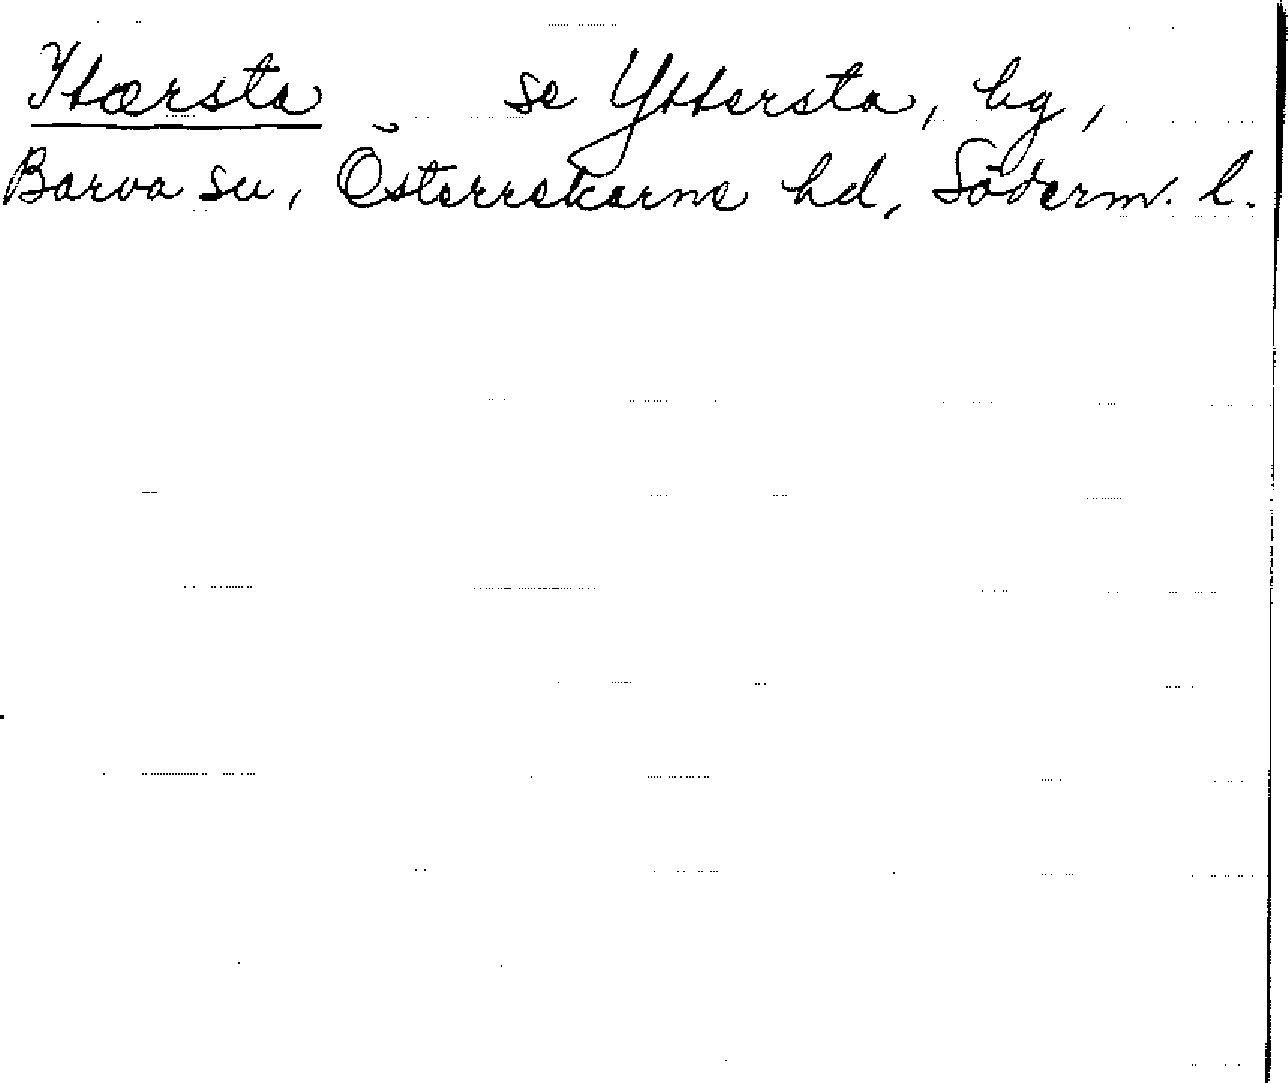 Ytærsta se Yttersta, by,
Barva sn, Österrekarne hd, Söderm. l.